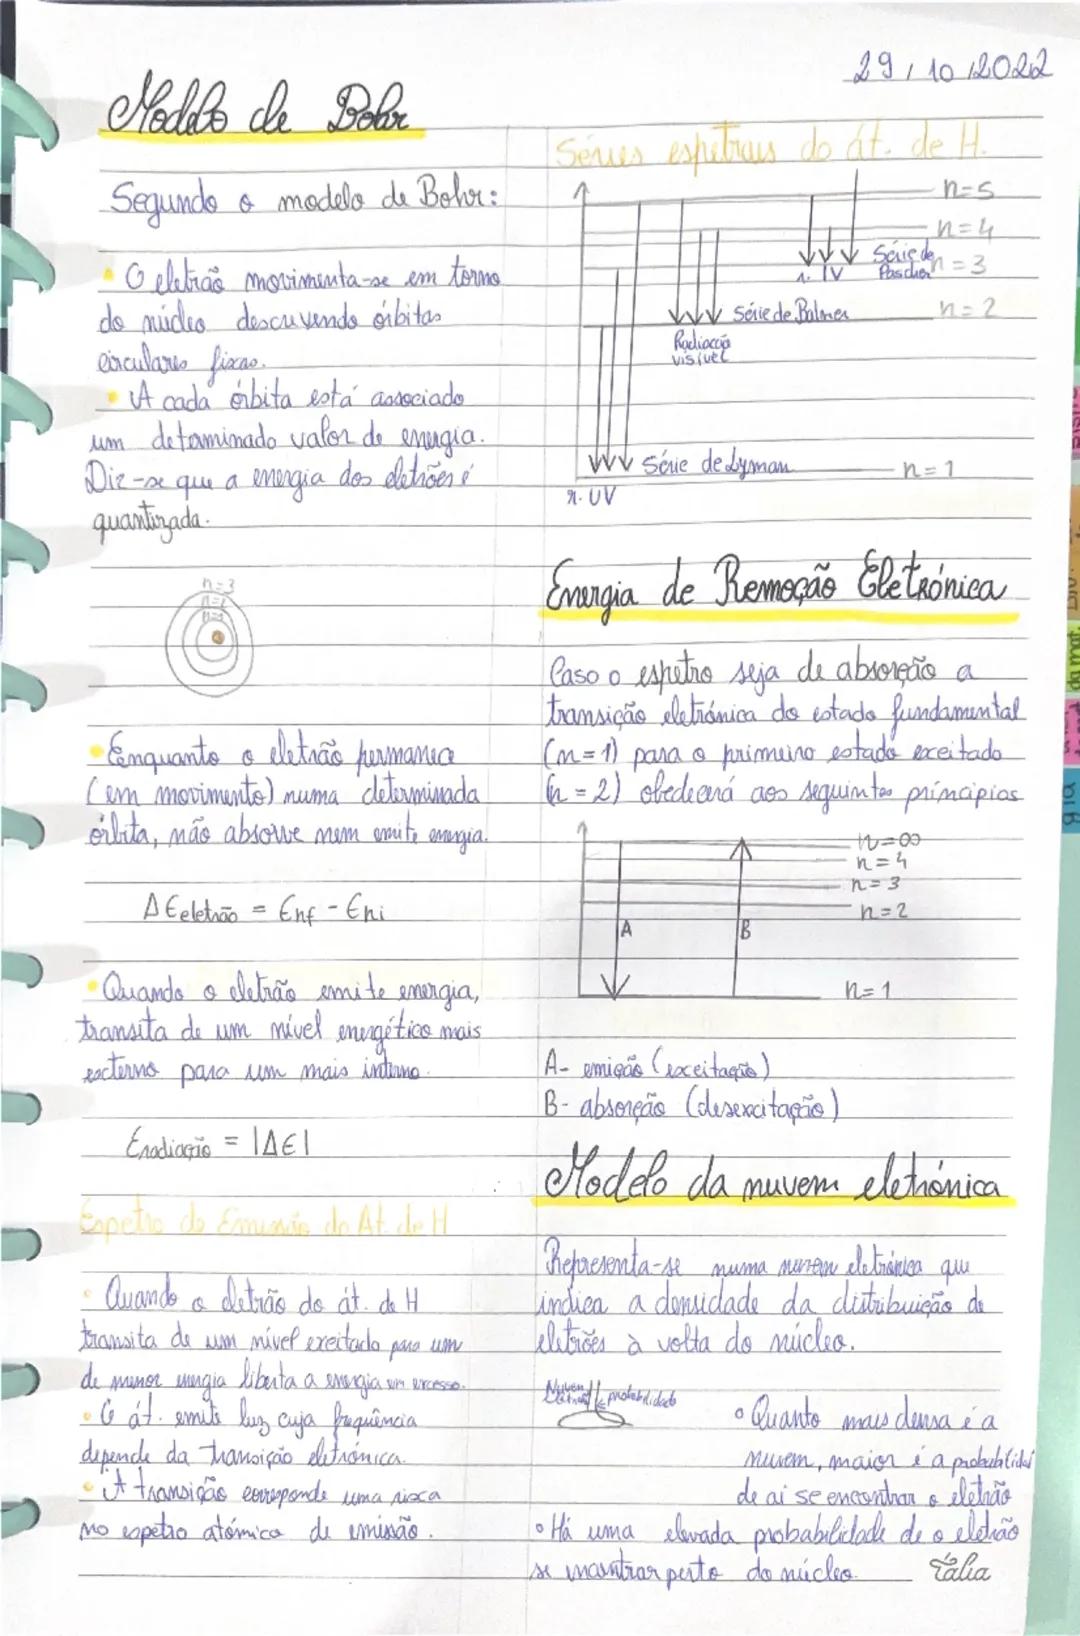 29/10/2022
Modelo de Bohr
Segundo o modelo de Bohr:
• O eletrão movimenta-se em torno
do núcleo descrevendo órbitas
circulares fixas.
• A cada órbita está associado
um determinado valor de energia.
Diz-se que a energia dos eletrões é
quantizada.
n=3
n=2
n=1
• Enquanto o eletrão permanece
(em movimento) numa determinada
órbita, não absorve nem emite energia.
ΔEeletrão = Enf - Eni
• Quando o eletrão emite energia,
transita de um nível energético mais
externo para um mais interno.
Eradiação = |ΔE|
Espetro de Emissão do At. de H
• Quando o eletrão do át. de H
transita de um nível excitado para um
de menor energia liberta a energia em excesso.
• O át. emite luz cuja frequência
depende da transição eletrónica.
• A transição corresponde uma risca
no espetro atómico de emissão.
Séries espetrais do át. de H.
n=5
n=4
Série de
Paschen
n=3
r. IV
n=2
Série de Balmer
Radiação
visível
Série de Lyman
n=1
r. UV
Energia de Remoção Eletrónica
Caso o espetro seja de absorção a
transição eletrónica do estado fundamental
(n=1) para o primeiro estado exceitado
(n=2) obedecerá aos seguintes princípios
n=∞
n=4
n=3
n=2
A
B
n=1
A- emição (exceitação)
B- absorção (desexcitação)
Modelo da nuvem eletrónica
Representa-se numa nuvem eletrónica que
indica a densidade da distribuição de
eletrões à volta do núcleo.
Nuvem
probabilidade
• Quanto mais densa é a
nuvem, maior é a probabilidad
de aí se encontrar o eletrão
• Há uma elevada probabilidade de o eletrão
se encontrar perto do núcleo.
Tália